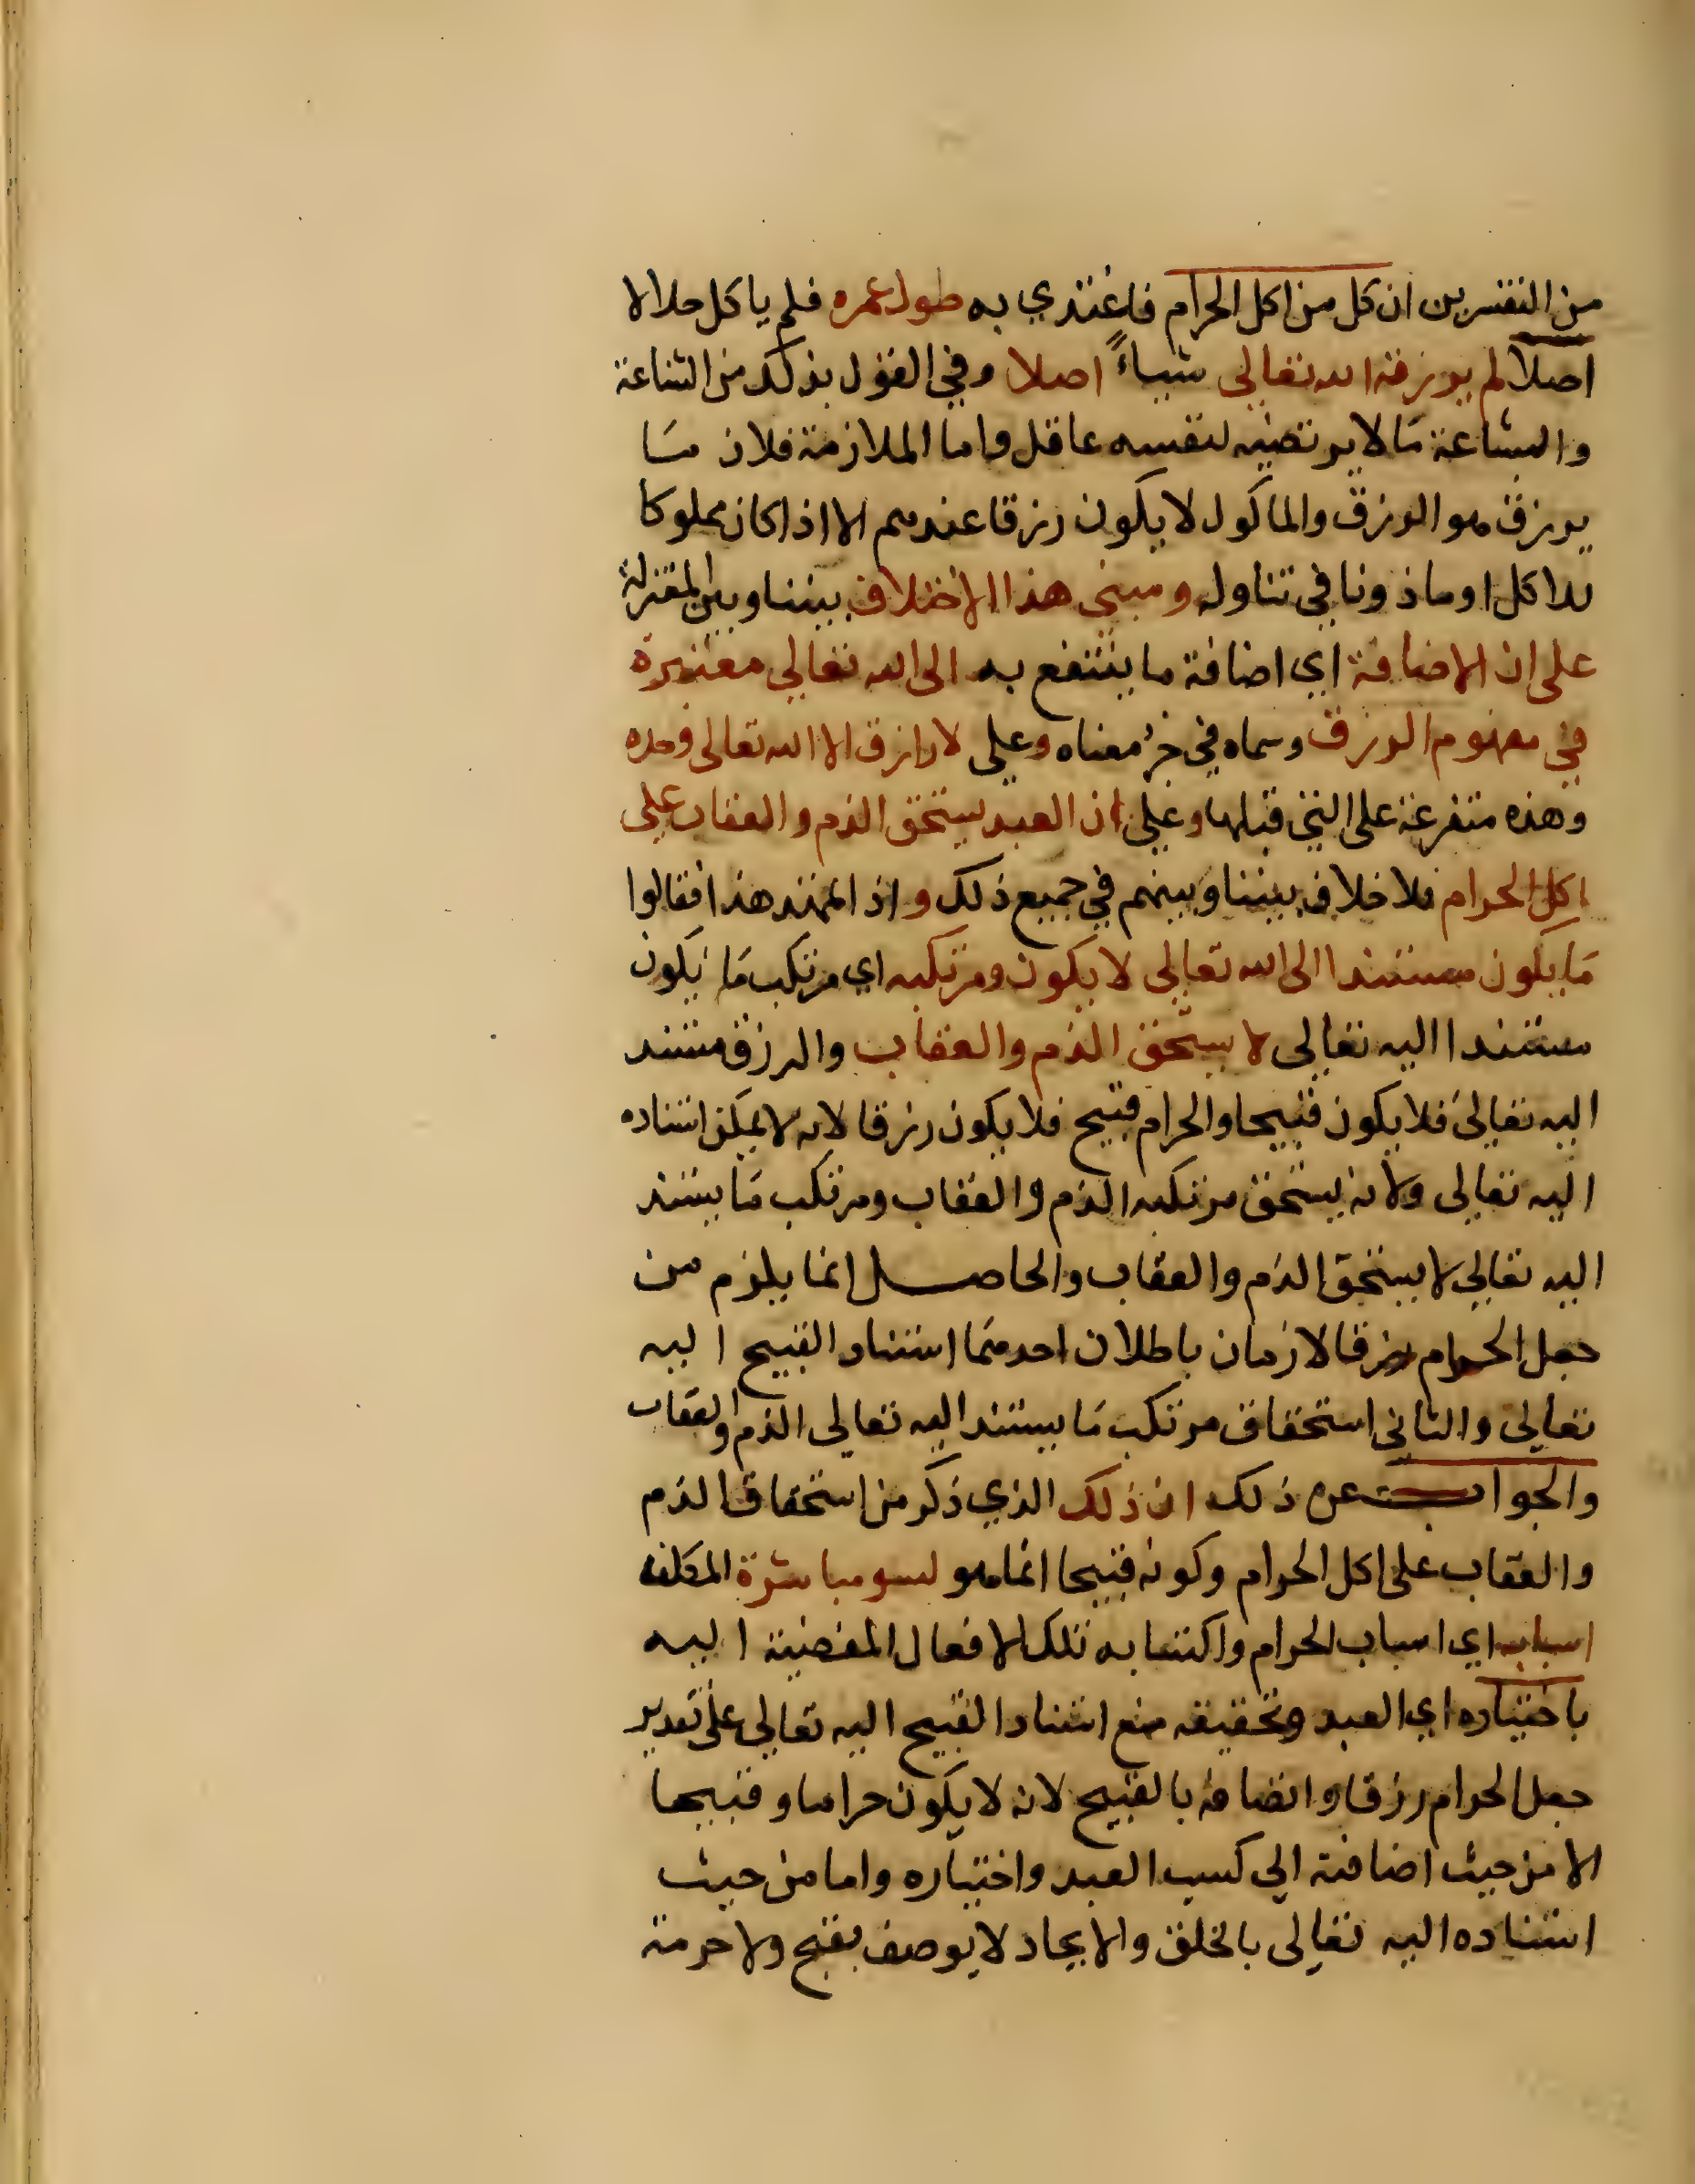 من التفسيرين ان كل من اكل الحرام فاغتذي به طول عمره فلم ياكل حلالا
اصلا لم يرزقه الله تعالي شياءً اصلا وفي القول بذلك من الشناعة
والبشاعة مَا لا يرتضيه لنفسه عاقل واما الملازمة فلان مَا
يرزق هو الرزق والماكول لا يكون رزقا عندهم الا اذا كان مملوكا
للاكل او ماذونا في تناوله ومبني هذا الاختلاف بيننا وبين المعتزلة
على ان الاضافة اي اضافة ما ينتفع به الى الله تعالي معتبرة
في مفهوم الرزق وسماه في جزء معناه وعلي لا رازق الا الله تعالى وحده
وهذه متفرعة على التي قبلها وعلي ان العبد يستحق الذم والعقاب علي
اكل الحرام فلا خلاف بيننا وبينهم في جميع ذلك واذا تمهد هذا فقالوا
مَا يكون مستندا الى الله تعالي لا يكون ومرتكبه اي مرتكب مَا يكون
مستندا اليه تعالى لا يستحق الذم والعقاب والرزق مستند
اليه تعالي فلا يكون قبيحا والحرام قبيح فلا يكون رزقا لانه لا يمكن استناده
اليه تعالى ولانه يستحق مرتكبه الذم والعقاب ومرتكب مَا يستند
اليه تعالي لا يستحق الذم والعقاب والحاصل انما يلزم من
جعل الحرام رزقا لازمان باطلان احدهما استناد القبيح اليه
تعالي والثاني استحقاق مرتكب مَا يستند اليه تعالى الذم والعقاب
والجواب عن ذلك ان ذلك الذي ذكر من استحقاق الذم
والعقاب على اكل الحرام وكونه قبيحا انما هو لسو مباشرة المكلف
اسبابه اي اسباب الحرام واكتسابه تلك الافعال المفضية اليه
باختياره اي العبد وتحقيقه منع استناد القبيح اليه تعالي على تقدير
جعل الحرام رزقا واتصافه بالقبيح لانه لا يكون حراما وقبيحا
الا من حيث اضافته الي كسب العبد واختياره واما من حيث
استناده اليه تعالى بالخلق والايجاد لا يوصف بقبح ولا حرمة